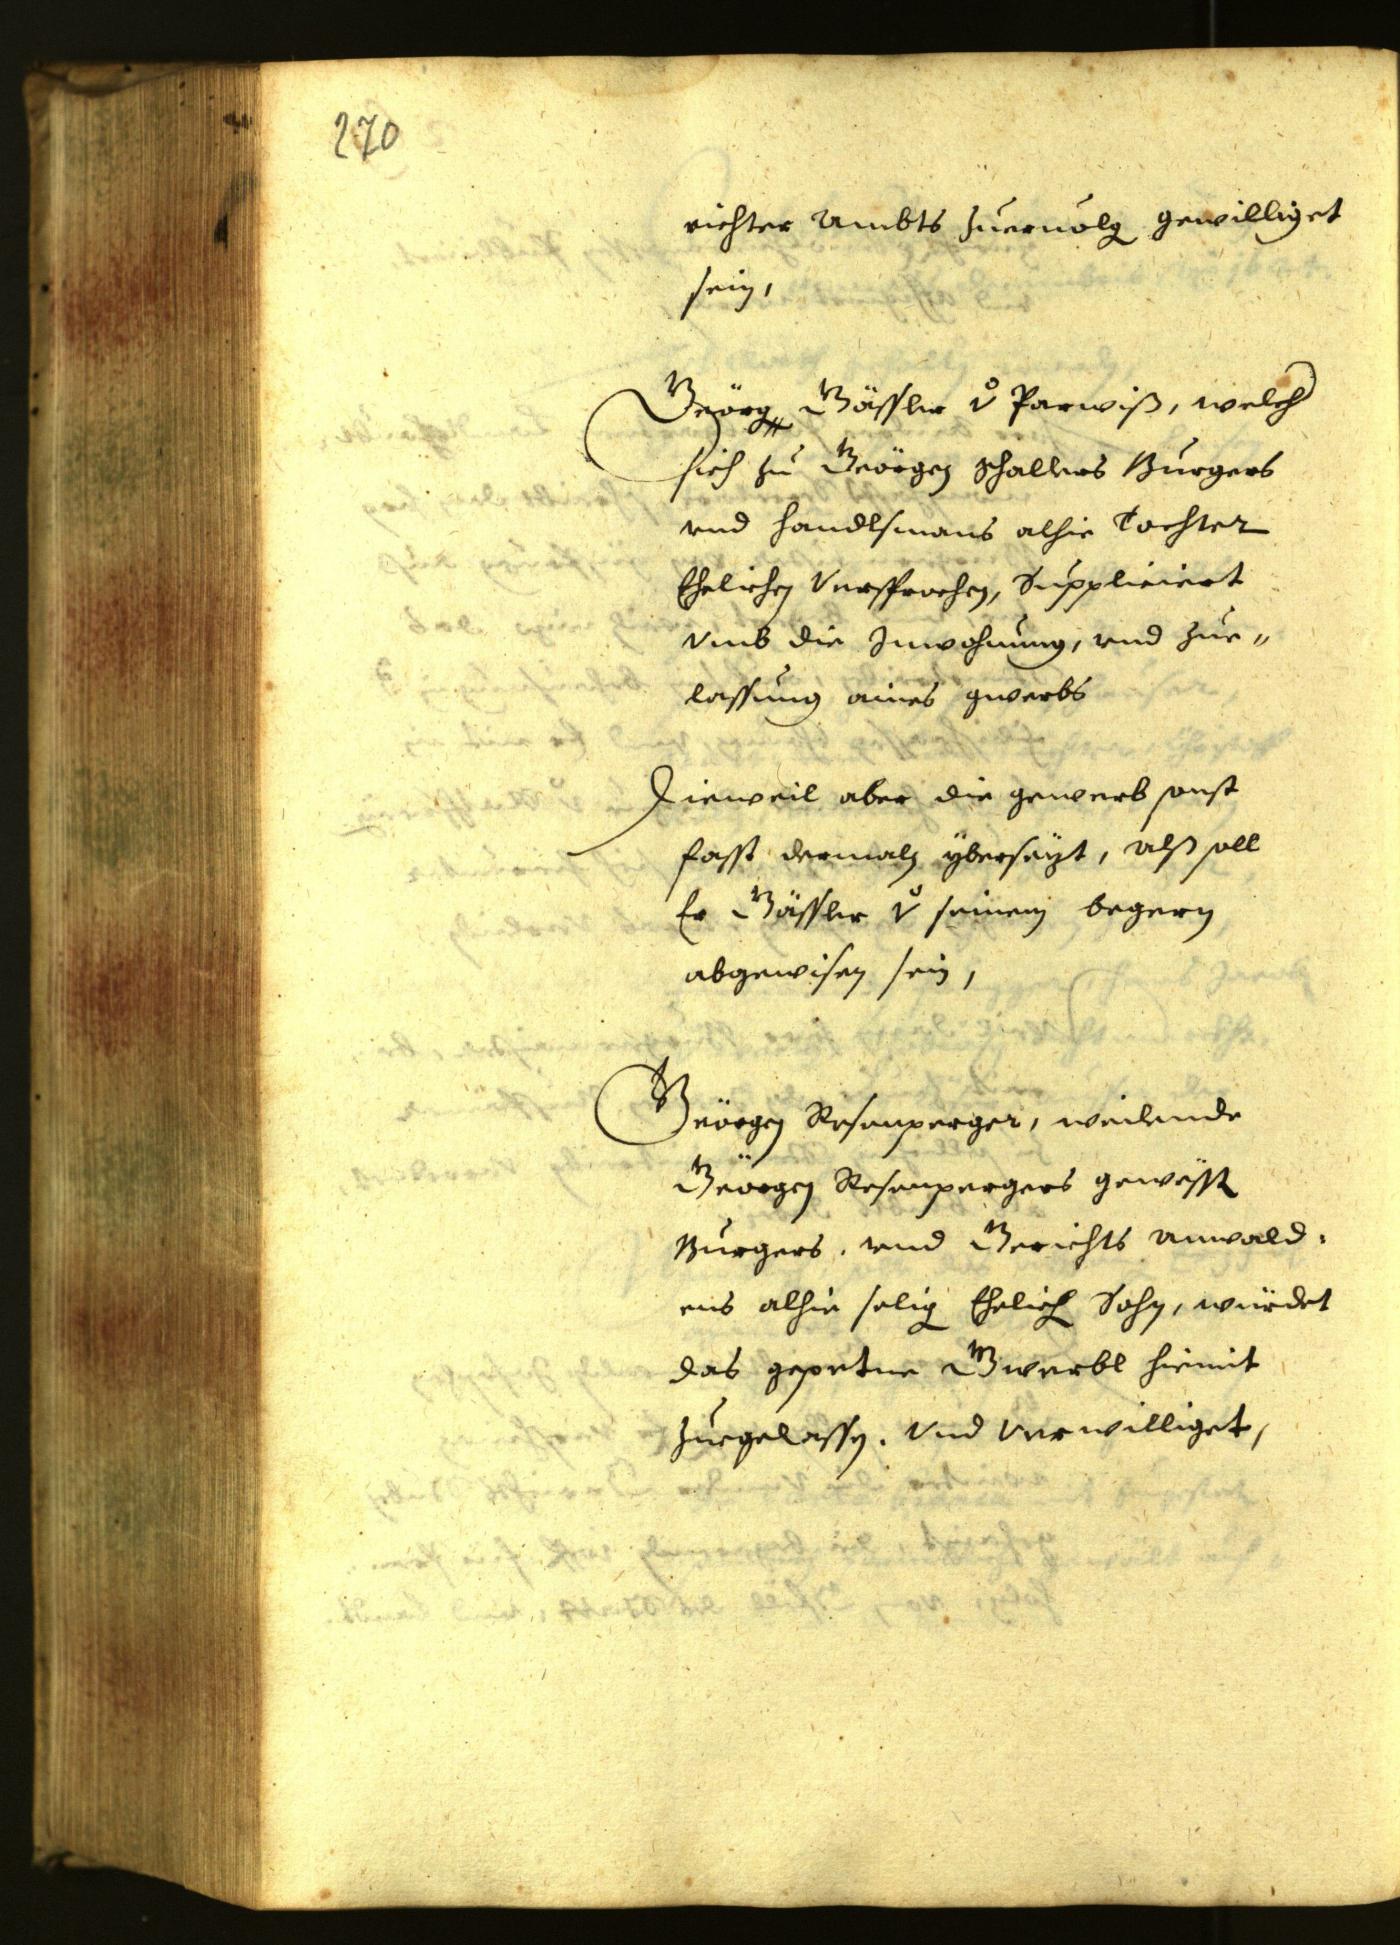 270
richter Ambts zueruolg gewilliget
sein,
Geörg Gässler v Parwiß, welch
sich zu Geörgen Schallers Burgers
vnd handlsmans alhie Tochter
Ehelichen Versprochen, Suppliciert
Vmb die Inwohnung, vnd zue„
lassung aines gwerbs
Dieweil aber die gewerb sonst
fasst dermaln ÿbersezt, Alß soll
Er Gässler v seinem begern
abgewisen sein,
Geörgen Rosenperger, weilende
Geörgen Rosenpergers gewesst
Burgers. vnd Gerichts Anwald:
ens alhie selig Ehelich Sohn, würdet
das gepetne Gwerbl hiemit
zuegelassen. Vnd Verwilliget,